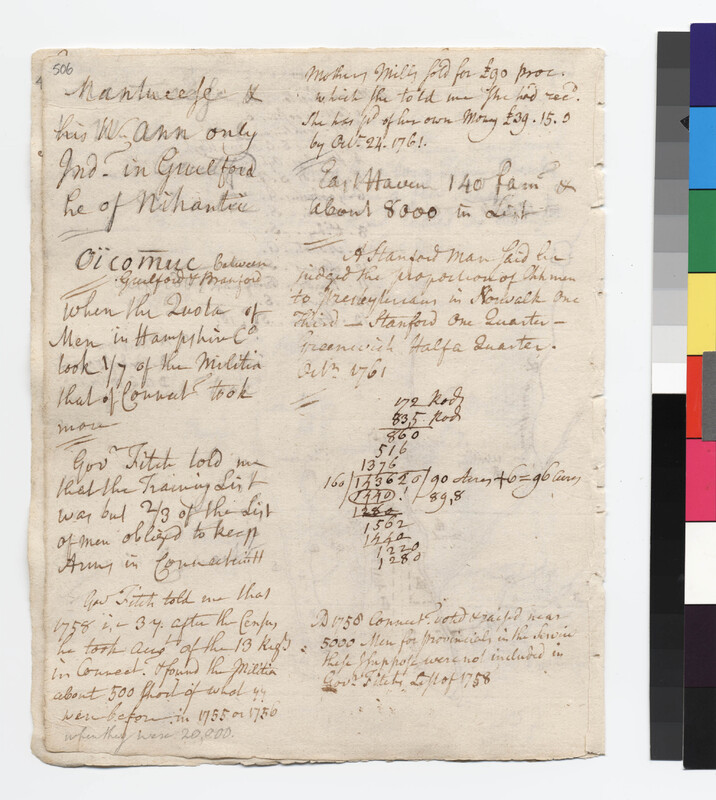 506
Mantueese &
his W. Ann only
Ind.ˢ in Guilford
he of Nihantic
Oïcommuc between
Guilford & Branford
When the Quota of
Men in Hampshire Cᵒ.
took 1/7 of the Militia
that of Connectᵗ took
more
Govʳ Fitch told me
that the Training List
was but 2/3 of the List
of Men obliged to keep
Arms in Connecticutt
Govʳ Fitch told me that
1758 i.e 3 y. after the Census
he took accᵗ of the 13 Regᵗˢ
in Connect. & found the Militia
about 500 short of what yʸ
were before in 1755 or 1756
when they were 20,000.
Mothers Mills sold for £90 proc.
which she told me she had recᵈ.
She has of his own Mony £39.15.0
by Octʳ 24. 1761.
East Haven 140 famˢ &
about 8000 in List
A Stanford Man said he
judged the proportion of Chhmen
to Presbyterians in Norwalk One
Third — Stanford One Quarter —
Greenwich Half a Quarter.
Octʳ 1761
172 Rods
835 Rods
860
516
1376
160 | 143620 | 90 Acres + 6 = 96 Acres
1440 89,8
1280
1562
1440
1220
1280
1758 Connectᵗ voted & raised near
5000 Men for provincials in the Service
these I suppose were not included in
Govʳ Fitch's List of 1758